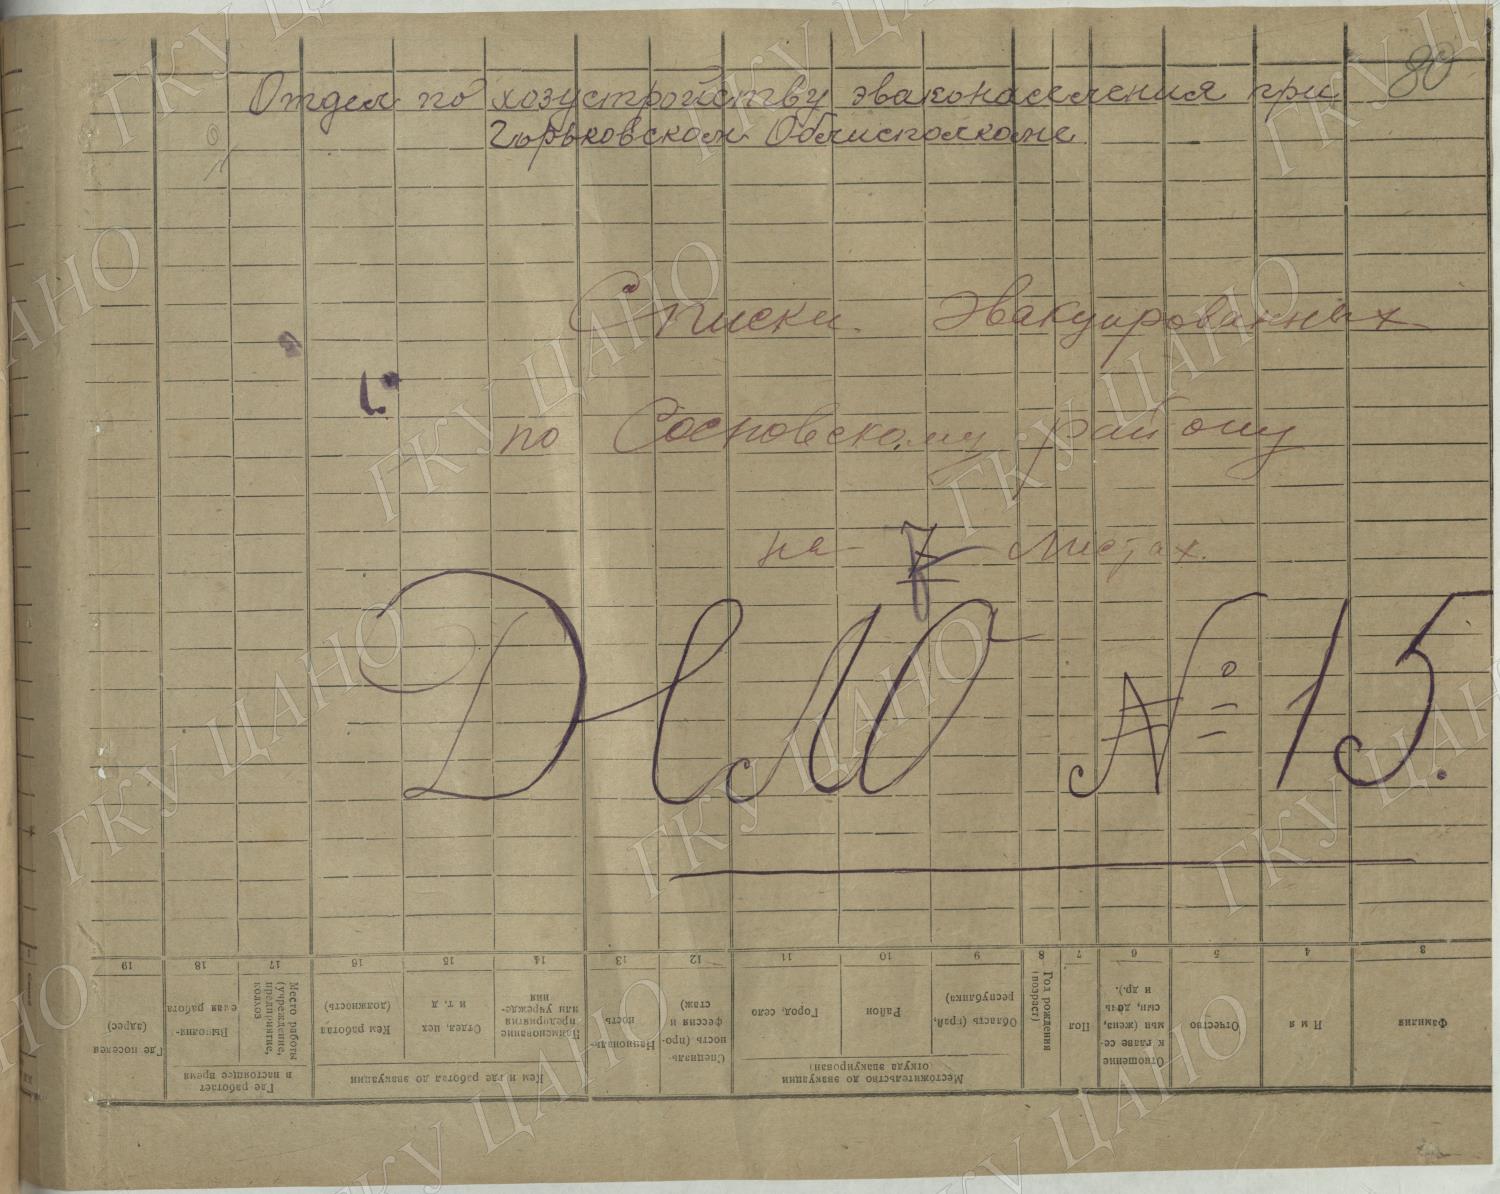 80
Отдел по хозустройству эваконаселения при
Горьковском Облисполкоме
Списки Эвакуированных
по Сосновскому району
на 7 листах.
Дело № 15.
3 4 5 6 7 8 9 10 11 12 13 14 15 16 17 18 19
Фамилия
Имя
Отчество
Отношение
к главе се-
мьи (жена,
сын, дочь
и др.).
Пол
Год рождения
(возраст)
Местожительство до эвакуации
(откуда эвакуирован)
Область (край,
республика)
Район
Город, село,
Специаль-
ность (про-
фессия и
стаж)
Националь-
ность
Кем и где работал до эвакуации
Наименование
предприятия
или учрежде-
ния
Отдел цех
и т. д.
Кем работал
(должность)
Где работает
в настоящее время
Место работы
(учреждение,
предприятие,
колхоз
Выполня-
емая работа
Где поселен
(адрес)
ГКУ ЦАНО